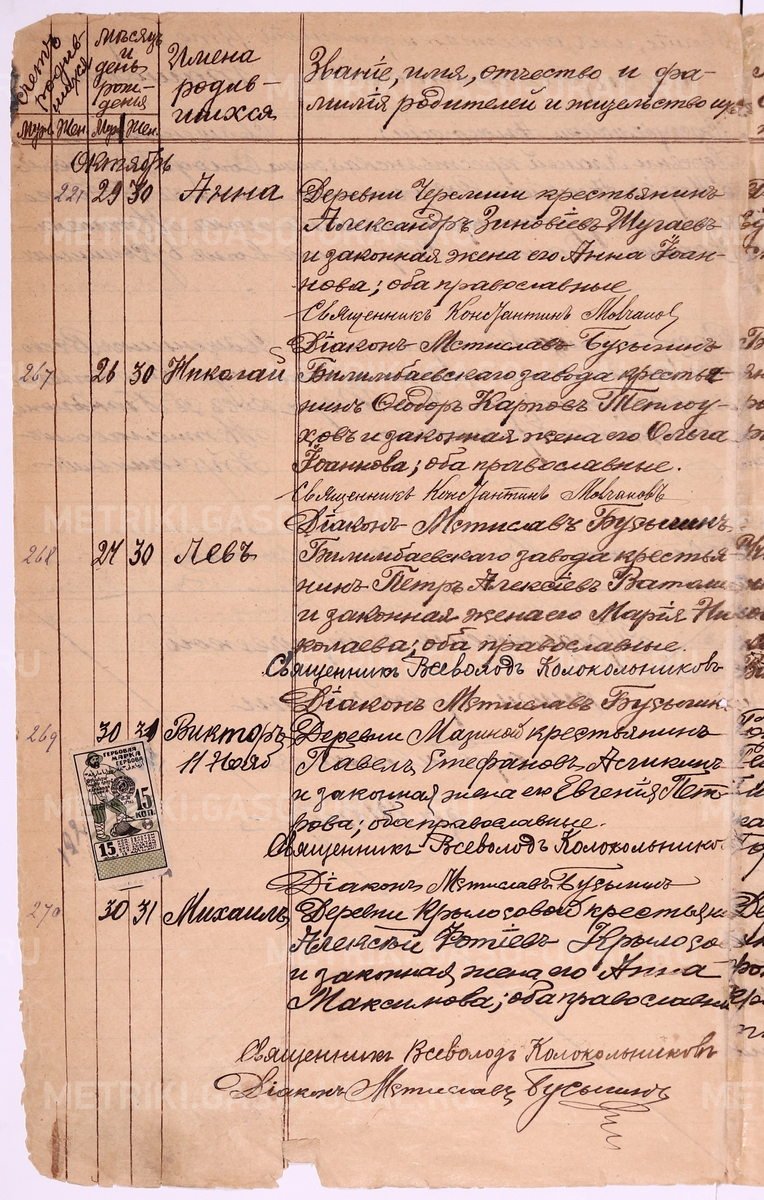 Счетъ родив- шихся
Мѣсяцъ и день рож- дения
Имена родив- шихся
Званіе, имя, отчество и фа-
милія родителей и жительство их
Муж. Жен. Муж. Жен.
Октябрь
221 29 30 Анна Деревни Черемши крестьянинъ
Александръ Зиновіевъ Шугаевъ
и законная жена его Анна Іоан-
нова; оба православные
Священникъ Константинъ Мовчановъ
Діаконъ Мстиславъ Бусыгинъ
267 26 30 Николай Билимбаевскаго завода крестья
нинъ Ѳеодоръ Карповъ Теплоу-
ховъ и законная жена его Ольга
Іоаннова; оба православные.
Священникъ Константинъ Мовчановъ
Діаконъ Мстиславъ Бусыгинъ
268 27 30 Левъ Билимбаевскаго завода крестья-
нинъ Петръ Алексіевъ
и законная жена его Марія Ни
колаева; оба православные.
Священникъ Всеволодъ Колокольниковъ
Діаконъ Мстиславъ Бусыгин
269 30 31 Викторъ Деревни Мазиной крестьянинъ
11 Нояб Павелъ Стефановъ
и законная жена его Евгенія Пет
рова; оба православные.
Священникъ Всеволодъ Колокольнико
Діаконъ Мстиславъ Бусыгинъ
ГЕРБОВАЯ
МАРКА
15
КОП.
15
270 30 31 Михаилъ Деревни Крылосовой крестьян
Алексѣй Фотіевъ Крылосо
и законная жена его Анна
Максимова; оба православны
Священникъ Всеволодъ Колокольниковъ
Діаконъ Мстиславъ Бусыгинъ